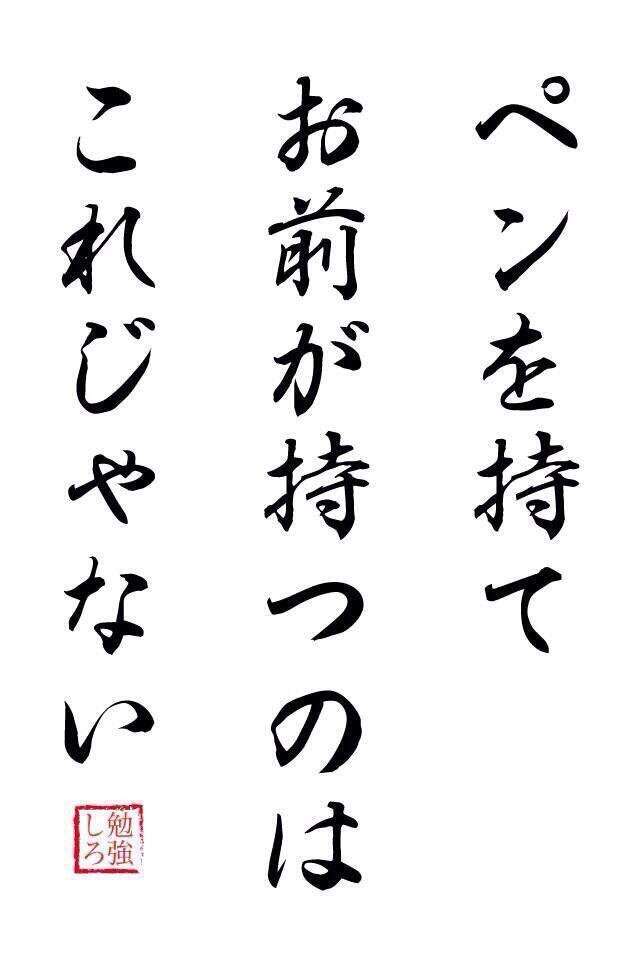 ペンを持て
お前が持つのは
これじゃない
勉強
しろ